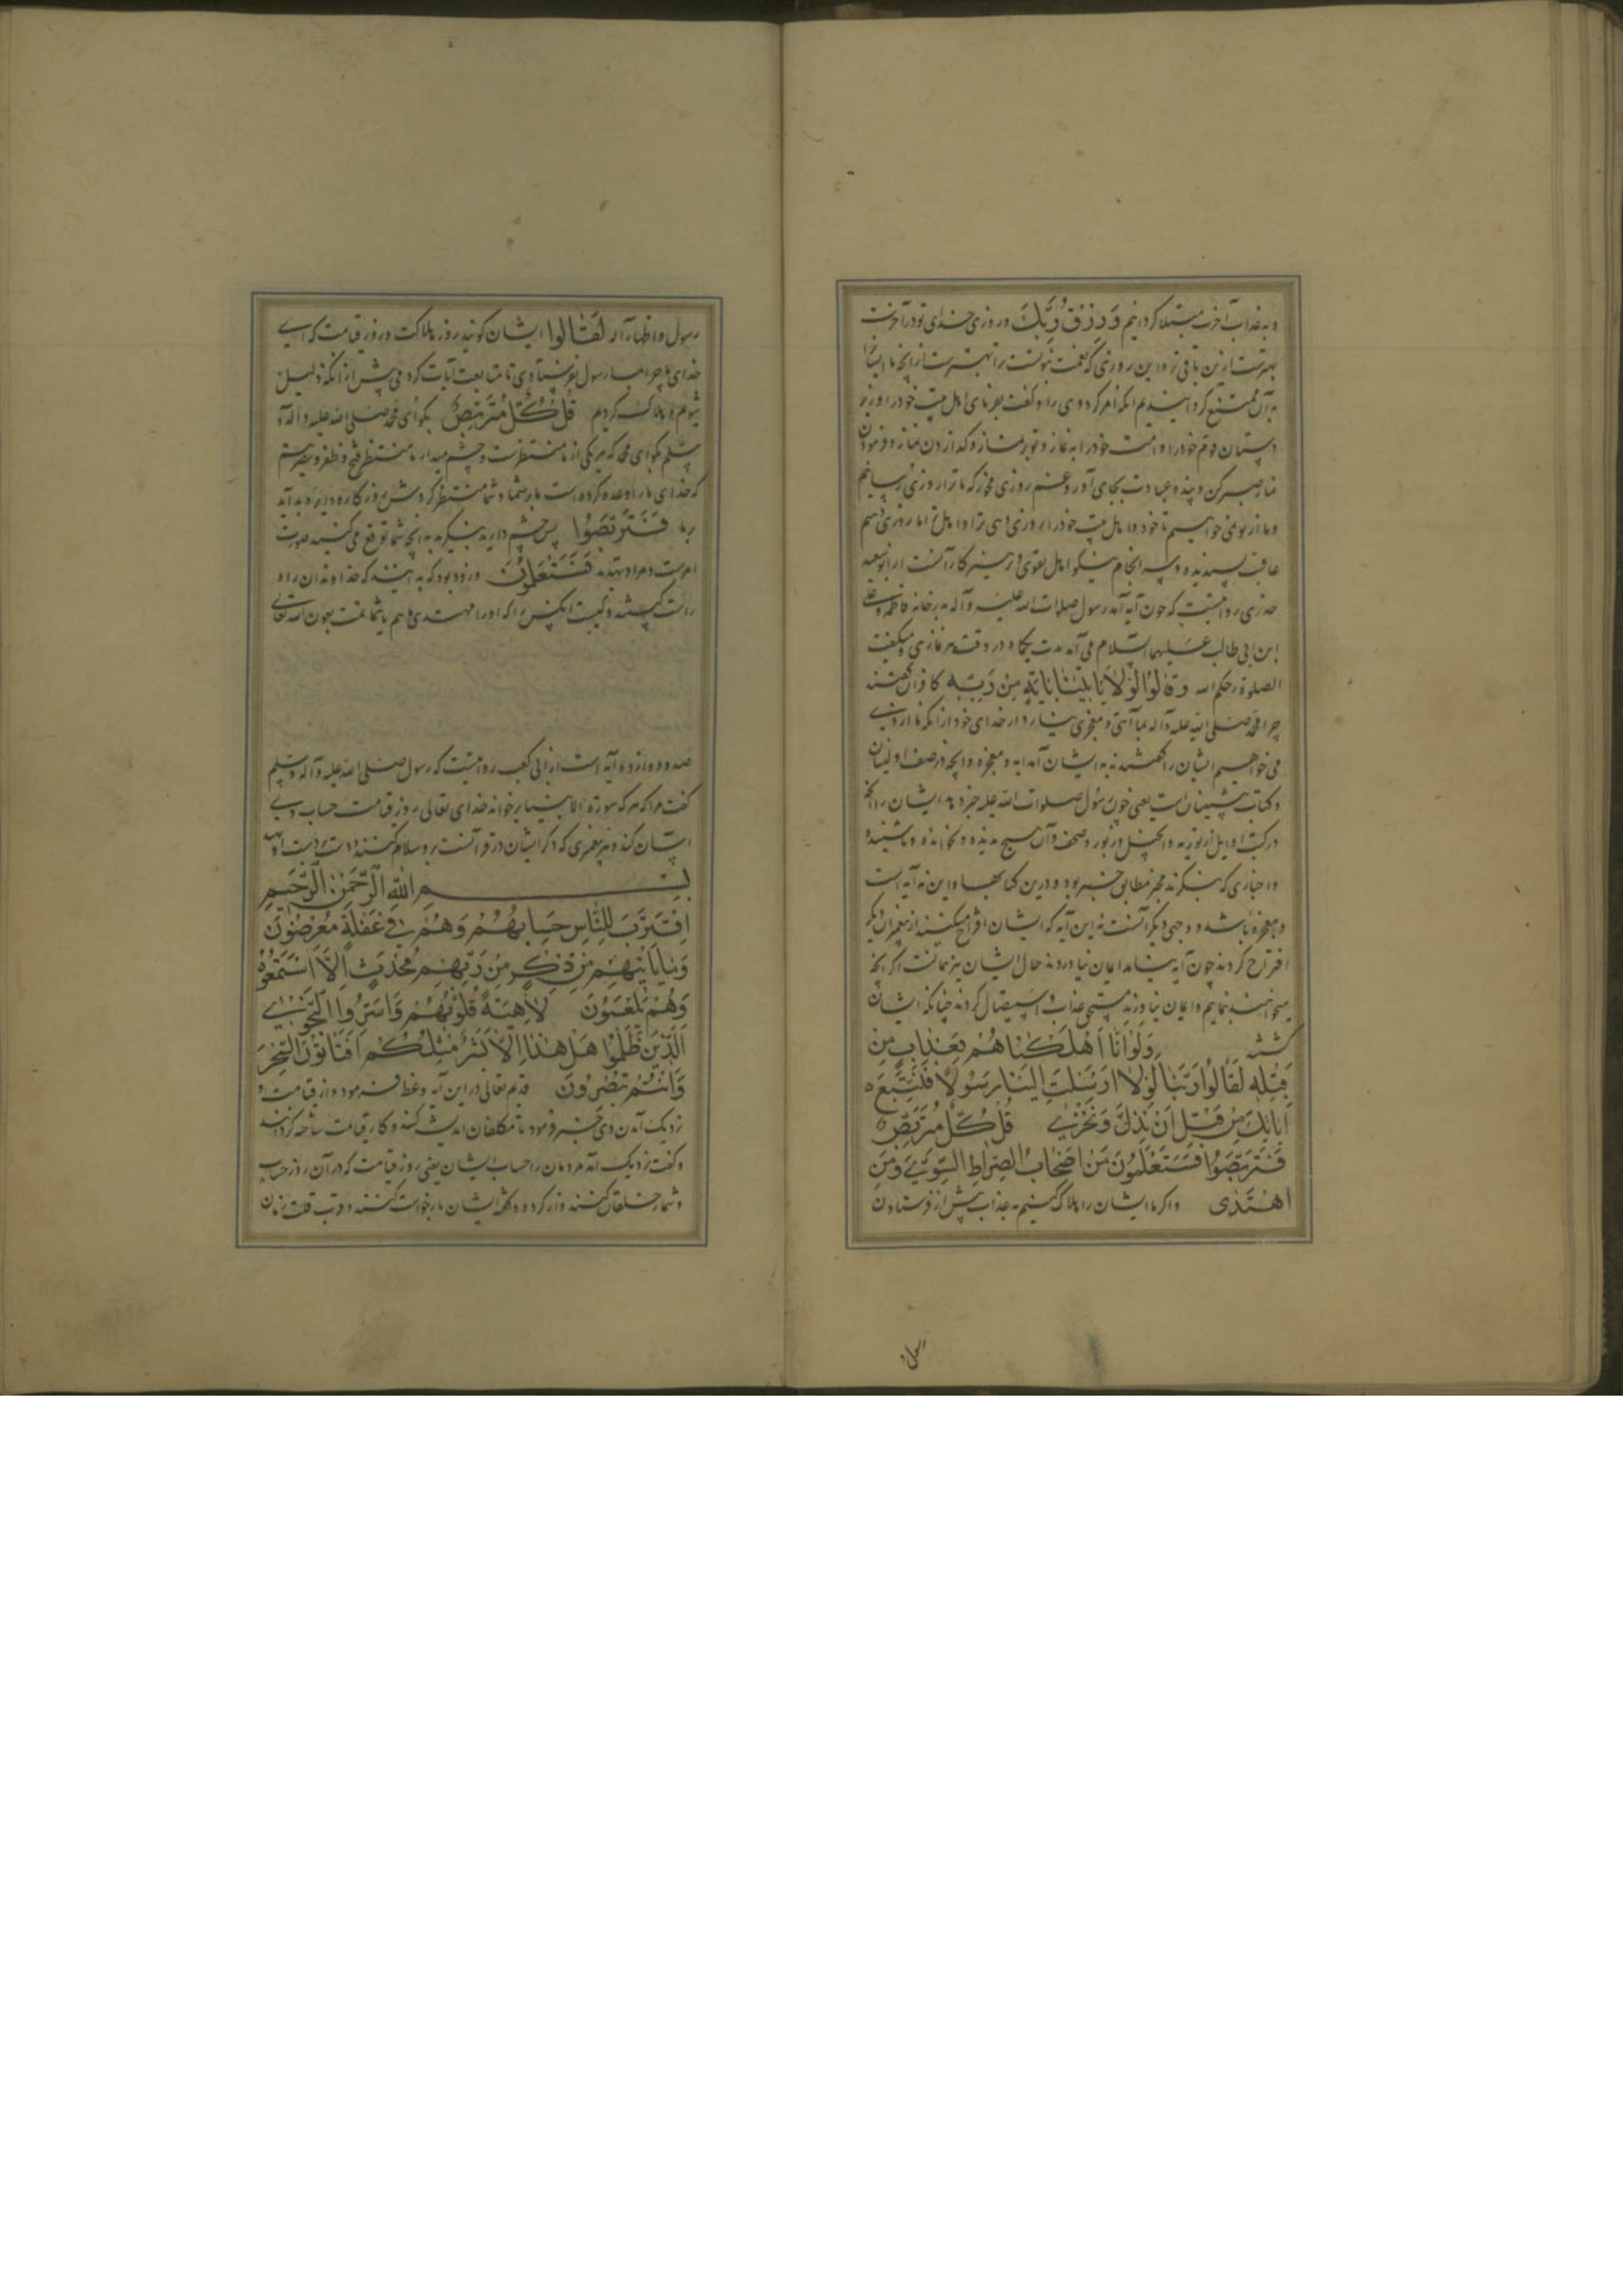 و به عذاب آخرت مبتلا کردانیم وَرِزْقُ رَبِّكَ و روزی خدای تو در آخرت
بهترست ازین باقی تر و این روزی که نعمت نبوتست ترا بهترست از آنچه ما ایشانرا
به آن ممتع کردانیدیم آنکه امر کرد وی را و کفت بفرمای اهل بیت خود را و زیر
دستان قوم خود را و امت خود را به نماز و تو بر نماز و کذاردن نماز و فرمودن
نماز صبر کن و پند و عبادت بجای آور و غم روزی مخور که ما ترا روزی رسانیم
و ما از تو نمی خواهیم تا خود و اهل بیت خود را روزی دهی ترا و اهل ترا ما روزی دهیم
عاقبت پسندیده و سرانجام نیکو اهل تقوی و پرهیزکار آنست از ابو سعید
خدری روایتست که چون آیه آمد رسول صلوات الله علیه و آله به در خانه فاطمه و علی
ابن ابی طالب علیهما السلام می آمد مدت یکماه در وقت هر نمازی و میکفت
الصلوة رحمکم الله وَقَالُوا لَوْلَا يَأْتِينَا بِآيَةٍ مِنْ رَبِّهِ کافران کفتند
چرا محمد صلی الله علیه و آله بما آیتی و معجزی نمی آرد از خدای خود از آنکه ما از وی
می خواهیم ایشان را کفتند نه به ایشان آمد آیه و معجزه و آنچه در صحف اولینان
و کتاب پیشینیان است یعنی چون رسول صلوات الله علیه خبر داد ایشان را آنچه
در کتب اوایل از توریه و انجیل و زبور و صحف و آن هیچ ندیده و نخوانده و نشنیده
و اخباری که بنکرند مخبر مطابق خبر بود و درین کتابها و این نه آیه است
و معجزه باشد و وجهی دیکر آنست که این آیه که ایشان اقتراح میکنند از پیغمبران دیکر
اقتراح کردند چون آیه بیامد ایمان نیاوردند حال ایشان نیز همانست اکر آنچه
میخواهند بنماییم و ایمان نیاورند مستحق عذاب و استیصال کردند چنانکه ایشان
کشتند وَلَوْ أَنَّا أَهْلَكْنَاهُمْ بِعَذَابٍ مِنْ
قَبْلِهِ لَقَالُوا رَبَّنَا لَوْلَا أَرْسَلْتَ إِلَيْنَا رَسُولًا فَنَتَّبِعَ
آيَاتِكَ مِنْ قَبْلِ أَنْ نَذِلَّ وَنَخْزَى قُلْ كُلٌّ مُتَرَبِّصٌ
فَتَرَبَّصُوا فَسَتَعْلَمُونَ مَنْ أَصْحَابُ الصِّرَاطِ السَّوِيِّ وَمَنِ
اهْتَدَى و اکر ما ایشان را هلاک کنیم به عذاب پیش از فرستادن
رسول
رسول و اظهار آیه لَقَالُوا ایشان کویند روز هلاکت و روز قیامت که ای
خدای ما چرا بما رسول نفرستادی تا متابعت آیات کردمی پیش از آنکه ذلیل
شویم و هلاک کردیم قُلْ كُلٌّ مُتَرَبِّصٌ بکو ای محمد صلی الله علیه و آله و
سلم بکو ای محمد که هر یکی از ما منتظرست و چشم میدارد ما منتظر فتح و ظفر و نصرتیم
که خدای ما را وعده کرده است بار شما و شما منتظر کردش روزکار و دیر و بد آید
بر ما فَتَرَبَّصُوا پس چشم دارید بنکرید به آنچه شما توقع می کنید صورت
امرست و مراد تهدید فَسَتَعْلَمُونَ و زود بود که به بینند که خداوندان راه
راست کیستند و کیست آنکس را که او راه مهتدی ماهم یا شما تمت بعون الله تعالی
صد و دوازده آیه است از ابی کعب روایتست که رسول صلی الله علیه و آله و سلم
کفت هر آکه هر که سورة الانبیا بر خواند خدای تعالی روز قیامت حساب وی
آسان کند و هر پیغمبری که ذکر ایشان در قرآنست برو سلام کنند و دست بدست او نهند
بِسْمِ اللَّهِ الرَّحْمَنِ الرَّحِيمِ
اِقْتَرَبَ لِلنَّاسِ حِسَابُهُمْ وَهُمْ فِي غَفْلَةٍ مُعْرِضُونَ
مَا يَأْتِيهِمْ مِنْ ذِكْرٍ مِنْ رَبِّهِمْ مُحْدَثٍ إِلَّا اسْتَمَعُوهُ
وَهُمْ يَلْعَبُونَ لَاهِيَةً قُلُوبُهُمْ وَأَسَرُّوا النَّجْوَى
الَّذِينَ ظَلَمُوا هَلْ هَذَا إِلَّا بَشَرٌ مِثْلُكُمْ أَفَتَأْتُونَ السِّحْرَ
وَأَنْتُمْ تُبْصِرُونَ قدیم تعالی در این آیه وعظ فرمود و از قیامت و
نزدیک آمدن وی خبر فرمود تا مکلفان اندیشه کنند و کار قیامت ساخته کردانند
و کفت نزدیک آمد مردمان را حساب ایشان یعنی روز قیامت که در آن روز حساب
و شمار خلقان کنند و از کرد و کفته ایشان باز خواست کنند و قرب قلت زمان